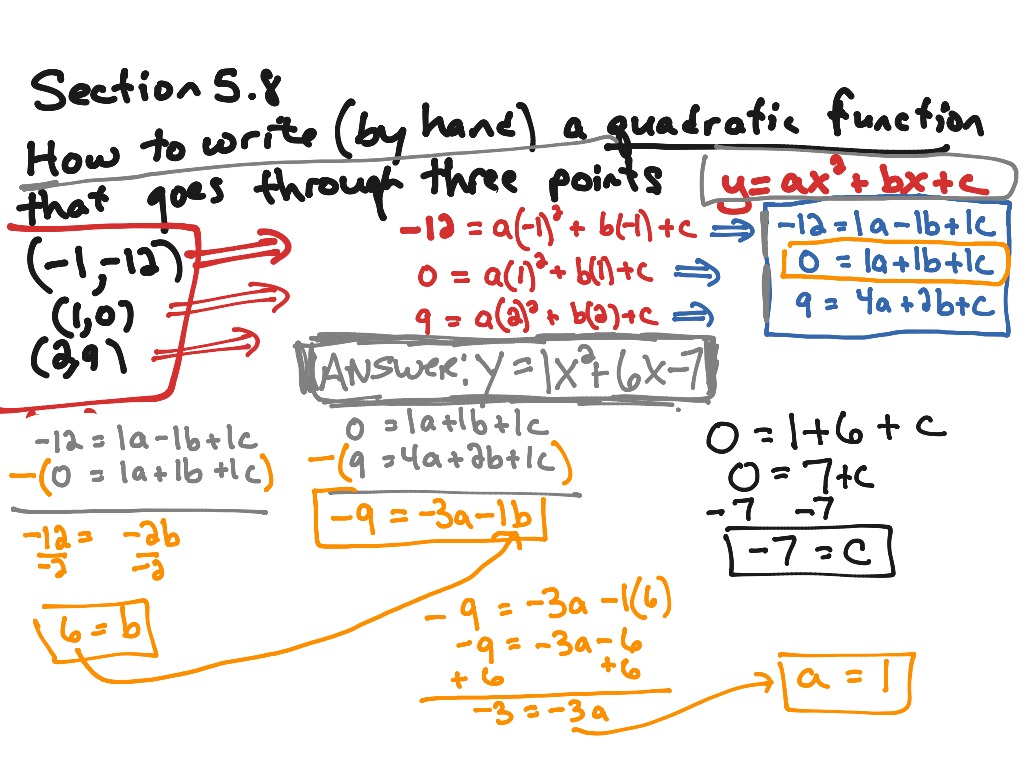 Section 5.8
How to write (by hand) a quadratic function
that goes through three points
y = ax² + bx + c
(-1, -12)
(1, 0)
(2, 9)
-12 = a(-1)² + b(-1) + c
0 = a(1)² + b(1) + c
9 = a(2)² + b(2) + c
-12 = 1a - 1b + 1c
0 = 1a + 1b + 1c
9 = 4a + 2b + c
Answer: y = 1x² + 6x - 7
-12 = 1a - 1b + 1c
-(0 = 1a + 1b + 1c)
-12 = -2b
-2 -2
6 = b
0 = 1a + 1b + 1c
-(9 = 4a + 2b + 1c)
-9 = -3a - 1b
-9 = -3a - 1(6)
-9 = -3a - 6
+6 +6
-3 = -3a
a = 1
0 = 1 + 6 + c
0 = 7 + c
-7 -7
-7 = c